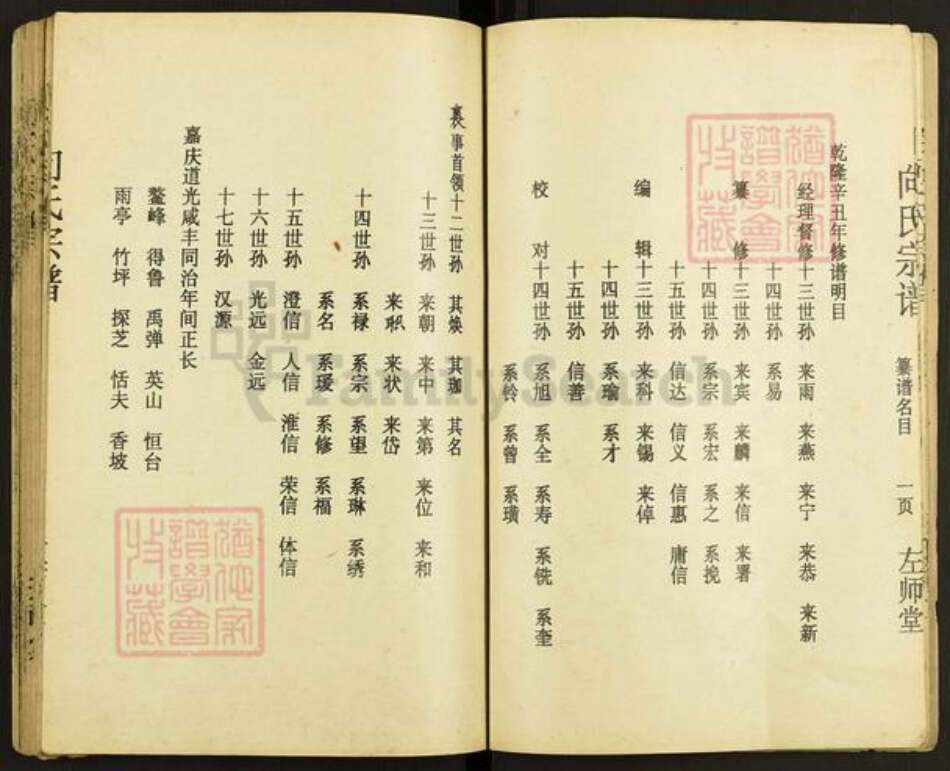 向氏宗谱 纂谱名目 一页 左师堂
乾隆辛丑年修谱明目
经理督修十三世孙 来雨 来燕 来宁 来恭 来新
十四世孙 系易
纂修十三世孙 来宾 来麟 来信 来署
十四世孙 系宗 系宏 系之 系挽
十五世孙 信达 信义 信惠 庸信
编辑十三世孙 来科 来锡 来倬
十四世孙 系瑜 系才
十五世孙 信善
校对十四世孙 系旭 系全 系寿 系铣 系奎
系铃 系曾 系璜
襄事首领十二世孙 其焕 其珈 其名
十三世孙 来朝 来中 来第 来位 来和
来状 来岱
十四世孙 系禄 系宗 系望 系琳 系绣
系名 系瑗 系修 系福
十五世孙 澄信 人信 淮信 荣信 体信
十六世孙 光远 金远
十七世孙 汉源
嘉庆道光咸丰同治年间正长
鳌峰 得鲁 禹弹 英山 恒台
雨亭 竹坪 探芝 恬夫 香坡
FamilySearch